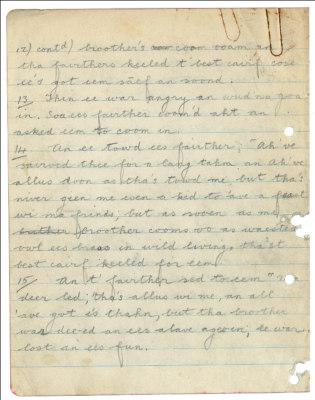 12) contd) broother's coom ooam an
tha fairthers keeled t' best cairf cose
ee's got eem sāēf an soond.
13 Then ee war angry an wud na goa
in. Soa ees fairther coom'd aht an
asked eem to coom in.
14 An ee towd ees fairther; "Ah've
sarved thee for a lang tahm an Ah've
allus doon as tha's towd me, but tha's
niver geen me even a kid to 'ave a feast
wi ma frinds, but as sooen as me
broother cooms oo as waested
owl ees in wild living, tha'st
best cairf keeled for eem.
15 An t' fairther sed to eem "Ma
deer led, tha's allus wi me, an all
'ave got is thahn, but tha broother
was deead an ees alave ageean, ee war
lost an ees fun.